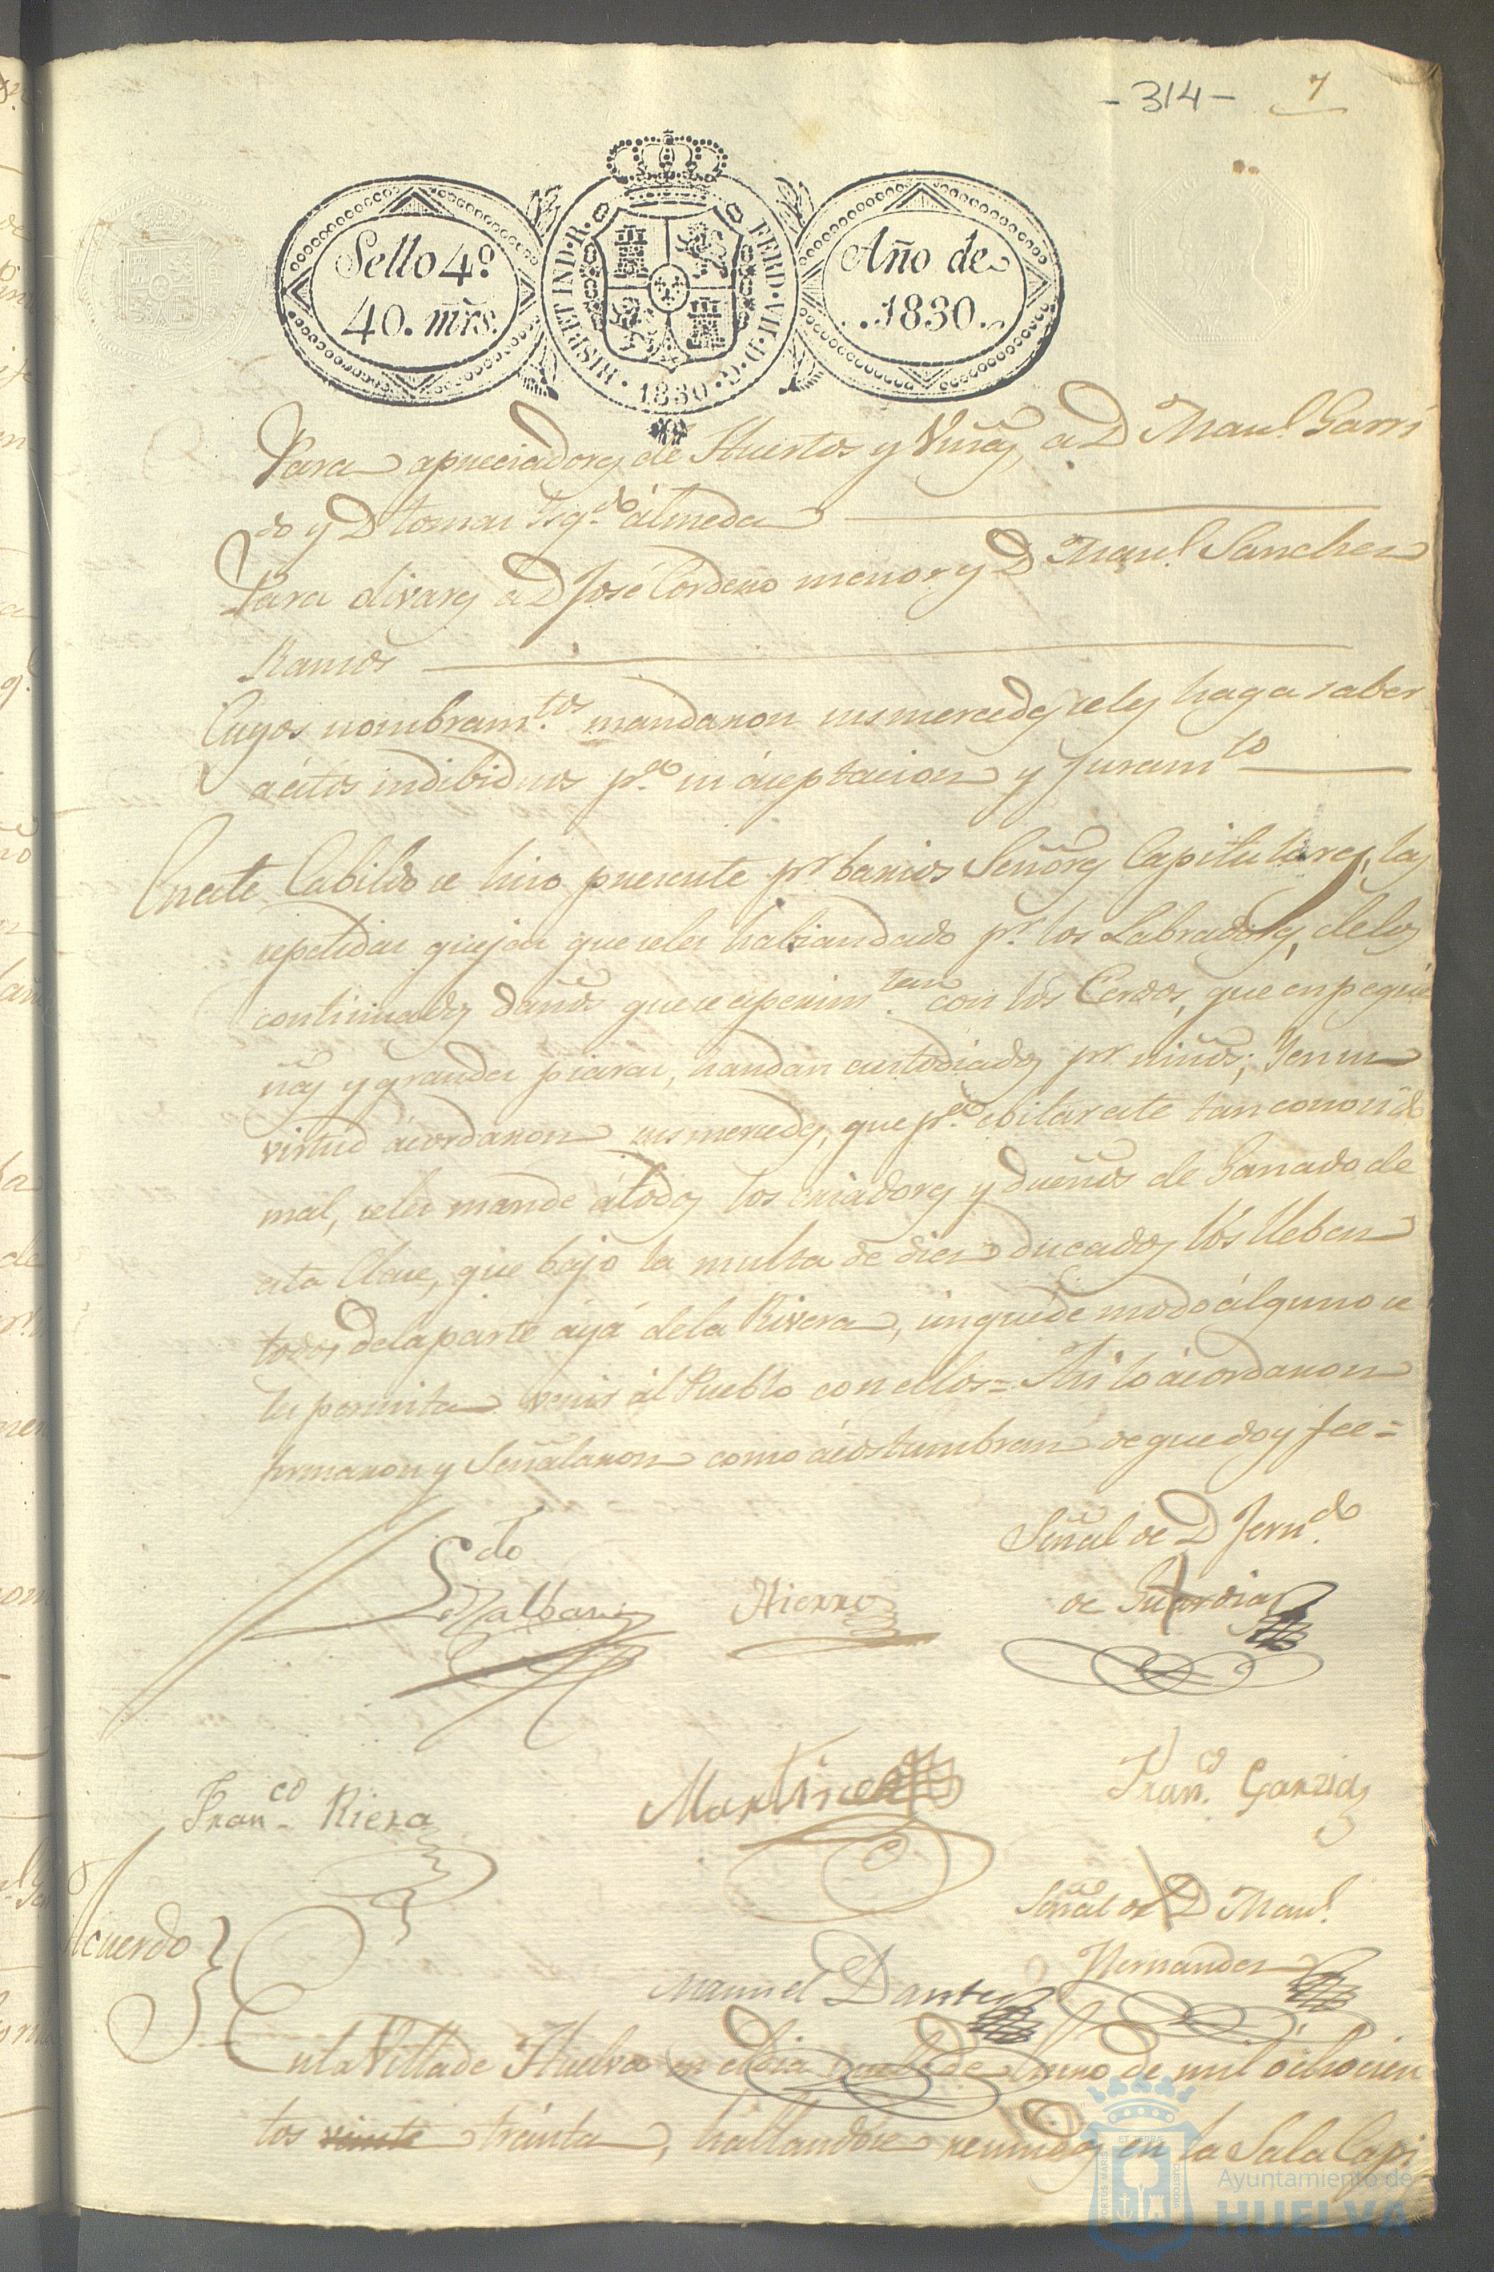 -314- 7
Sello 4º
40. mrs.
HISP. ET IND. R. FERD. VII. D. G. 1830
Año de
1830.
Para apreciadores de Huertos y Viñas, a D Manl. Garri
do y D tomas Izqdo. álmeda
Para olivares a D José Cordero menor y D Manl. Sanchez
Ramos
Cuyos nombramtos. mandaron sus mercedes se les haga saber
a éstos indibiduos pa. su áceptacion y Juramto
En este Cabildo se hizo presente pr barios Señores Capitulares, las
repetidas quejas que seles habian dado pr. los Labradores, delos
continuados daños que se esperimtan. con los Cerdos, que en peque
ñas y grandes piaras, handan custodiados pr. niños; Y en su
virtud ácordaron sus mercedes, que pa. ebitar este tan conosido
mal, seles mande átodos los criadores y dueños de Ganado de
esta Clase, que bajo la multa de diez ducados los lleben
todos dela parte áyá dela Rivera, sin que de modo álguno se
les permita venir ál Pueblo con ellos = Asi lo ácordaron
firmaron y Señalaron como ácostumbran de que doy fee =
Señal de D Ferndo.
Ldo
Malbar Hierro de Guardia
Franco. Riera Martinez Franco. Garzia
Señal de D Manl.
Hernandez
Acuerdo Manuel Dante
En la Villa de Huelva en el dia de Enero de mil óchocien
tos veinte tréinta, hallandose reunidos en la Sala Capi
PORTUS MARIS ET TERRAE CUSTODIA
Ayuntamiento de
HUELVA